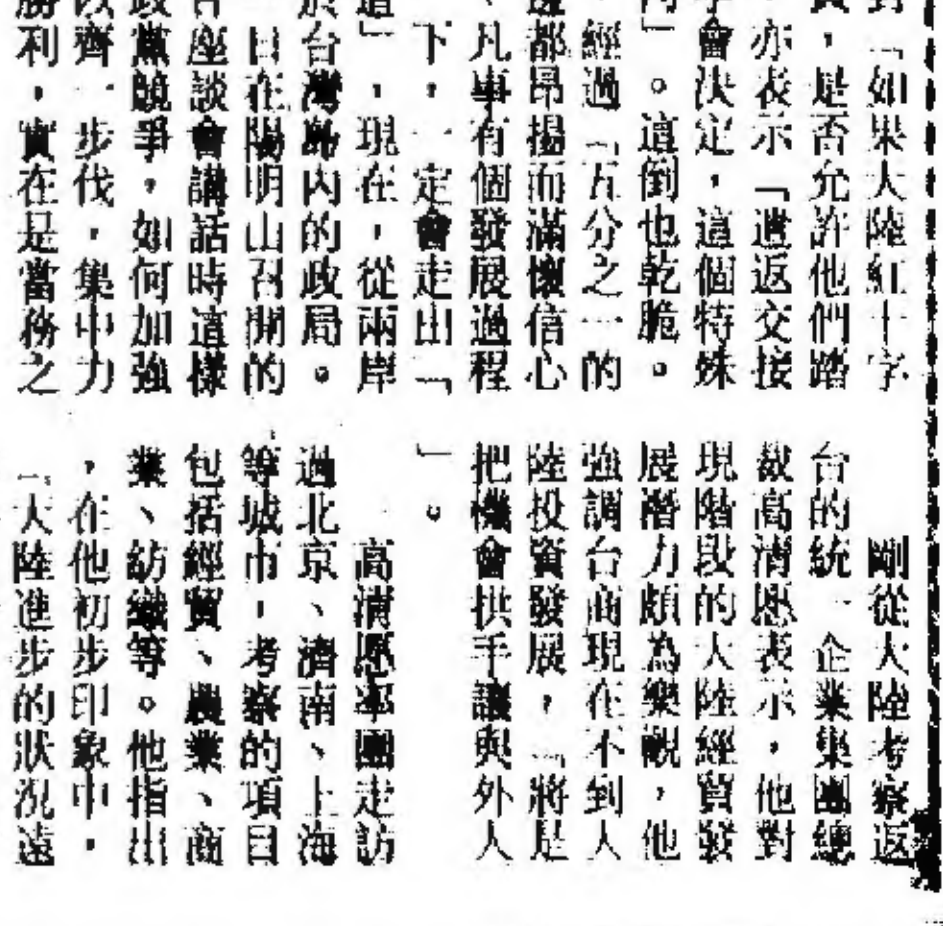 「如果大陸紅十字
，是否允許他們踏
，亦表示「遣返交接
會決定，這個特殊
」。這倒也乾脆。
經過「五分之一的
都昂揚而滿懷信心
、凡事有個發展過程
下，一定會走出「
」，現在，從兩岸
於台灣島內的政局。
日在陽明山召開的
座談會講話時這樣
政黨競爭，如何加強
以齊一步伐，集中力
勝利，實在是當務之
剛從大陸考察返
台的統一企業集團總
裁高清愿表示，他對
現階段的大陸經貿發
展潛力頗為樂觀，他
強調台商現在不到大
陸投資發展，「將是
把機會拱手讓與外人
」。
高清愿率團走訪
過北京、濟南、上海
等城市，考察的項目
包括經貿、農業、商
業、紡織等。他指出
，在他初步印象中，
「大陸進步的狀況遠